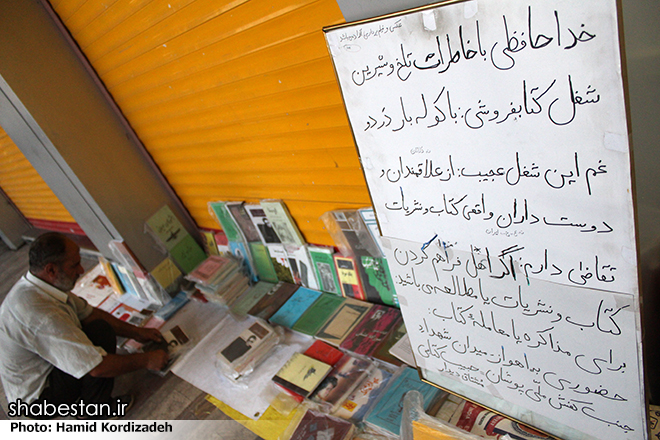 خداحافظی با خاطرات تلخ و شیرین
شغل کتابفروشی: با کوله بار درد و
غم این شغل عجیب: از علاقمندان و
دوست داران واقعی کتاب و نشریات
تقاضا دارم: اگر اهل فراهم کردن
کتاب و نشریات یا مطالعه می باشید:
برای مذاکره یا معامله کتاب:
حضوری به اهواز میدان شهداء
جنب کفش ملی
shabestan.ir
Photo: Hamid Kordizadeh